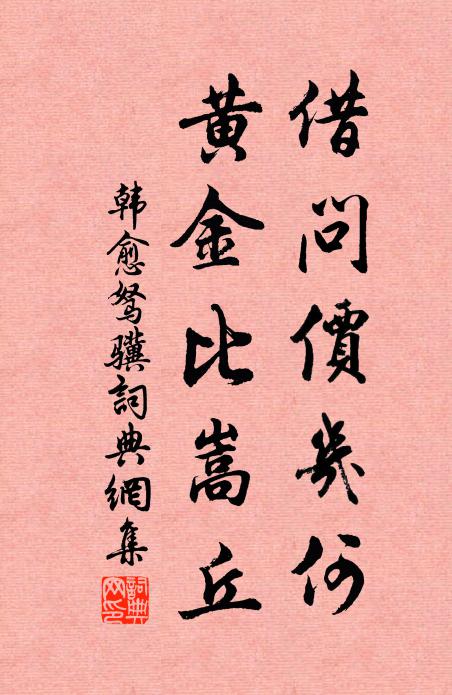 借問價幾何
黃金比嵩丘
韩愈驽骥詞典網集
詞典網印